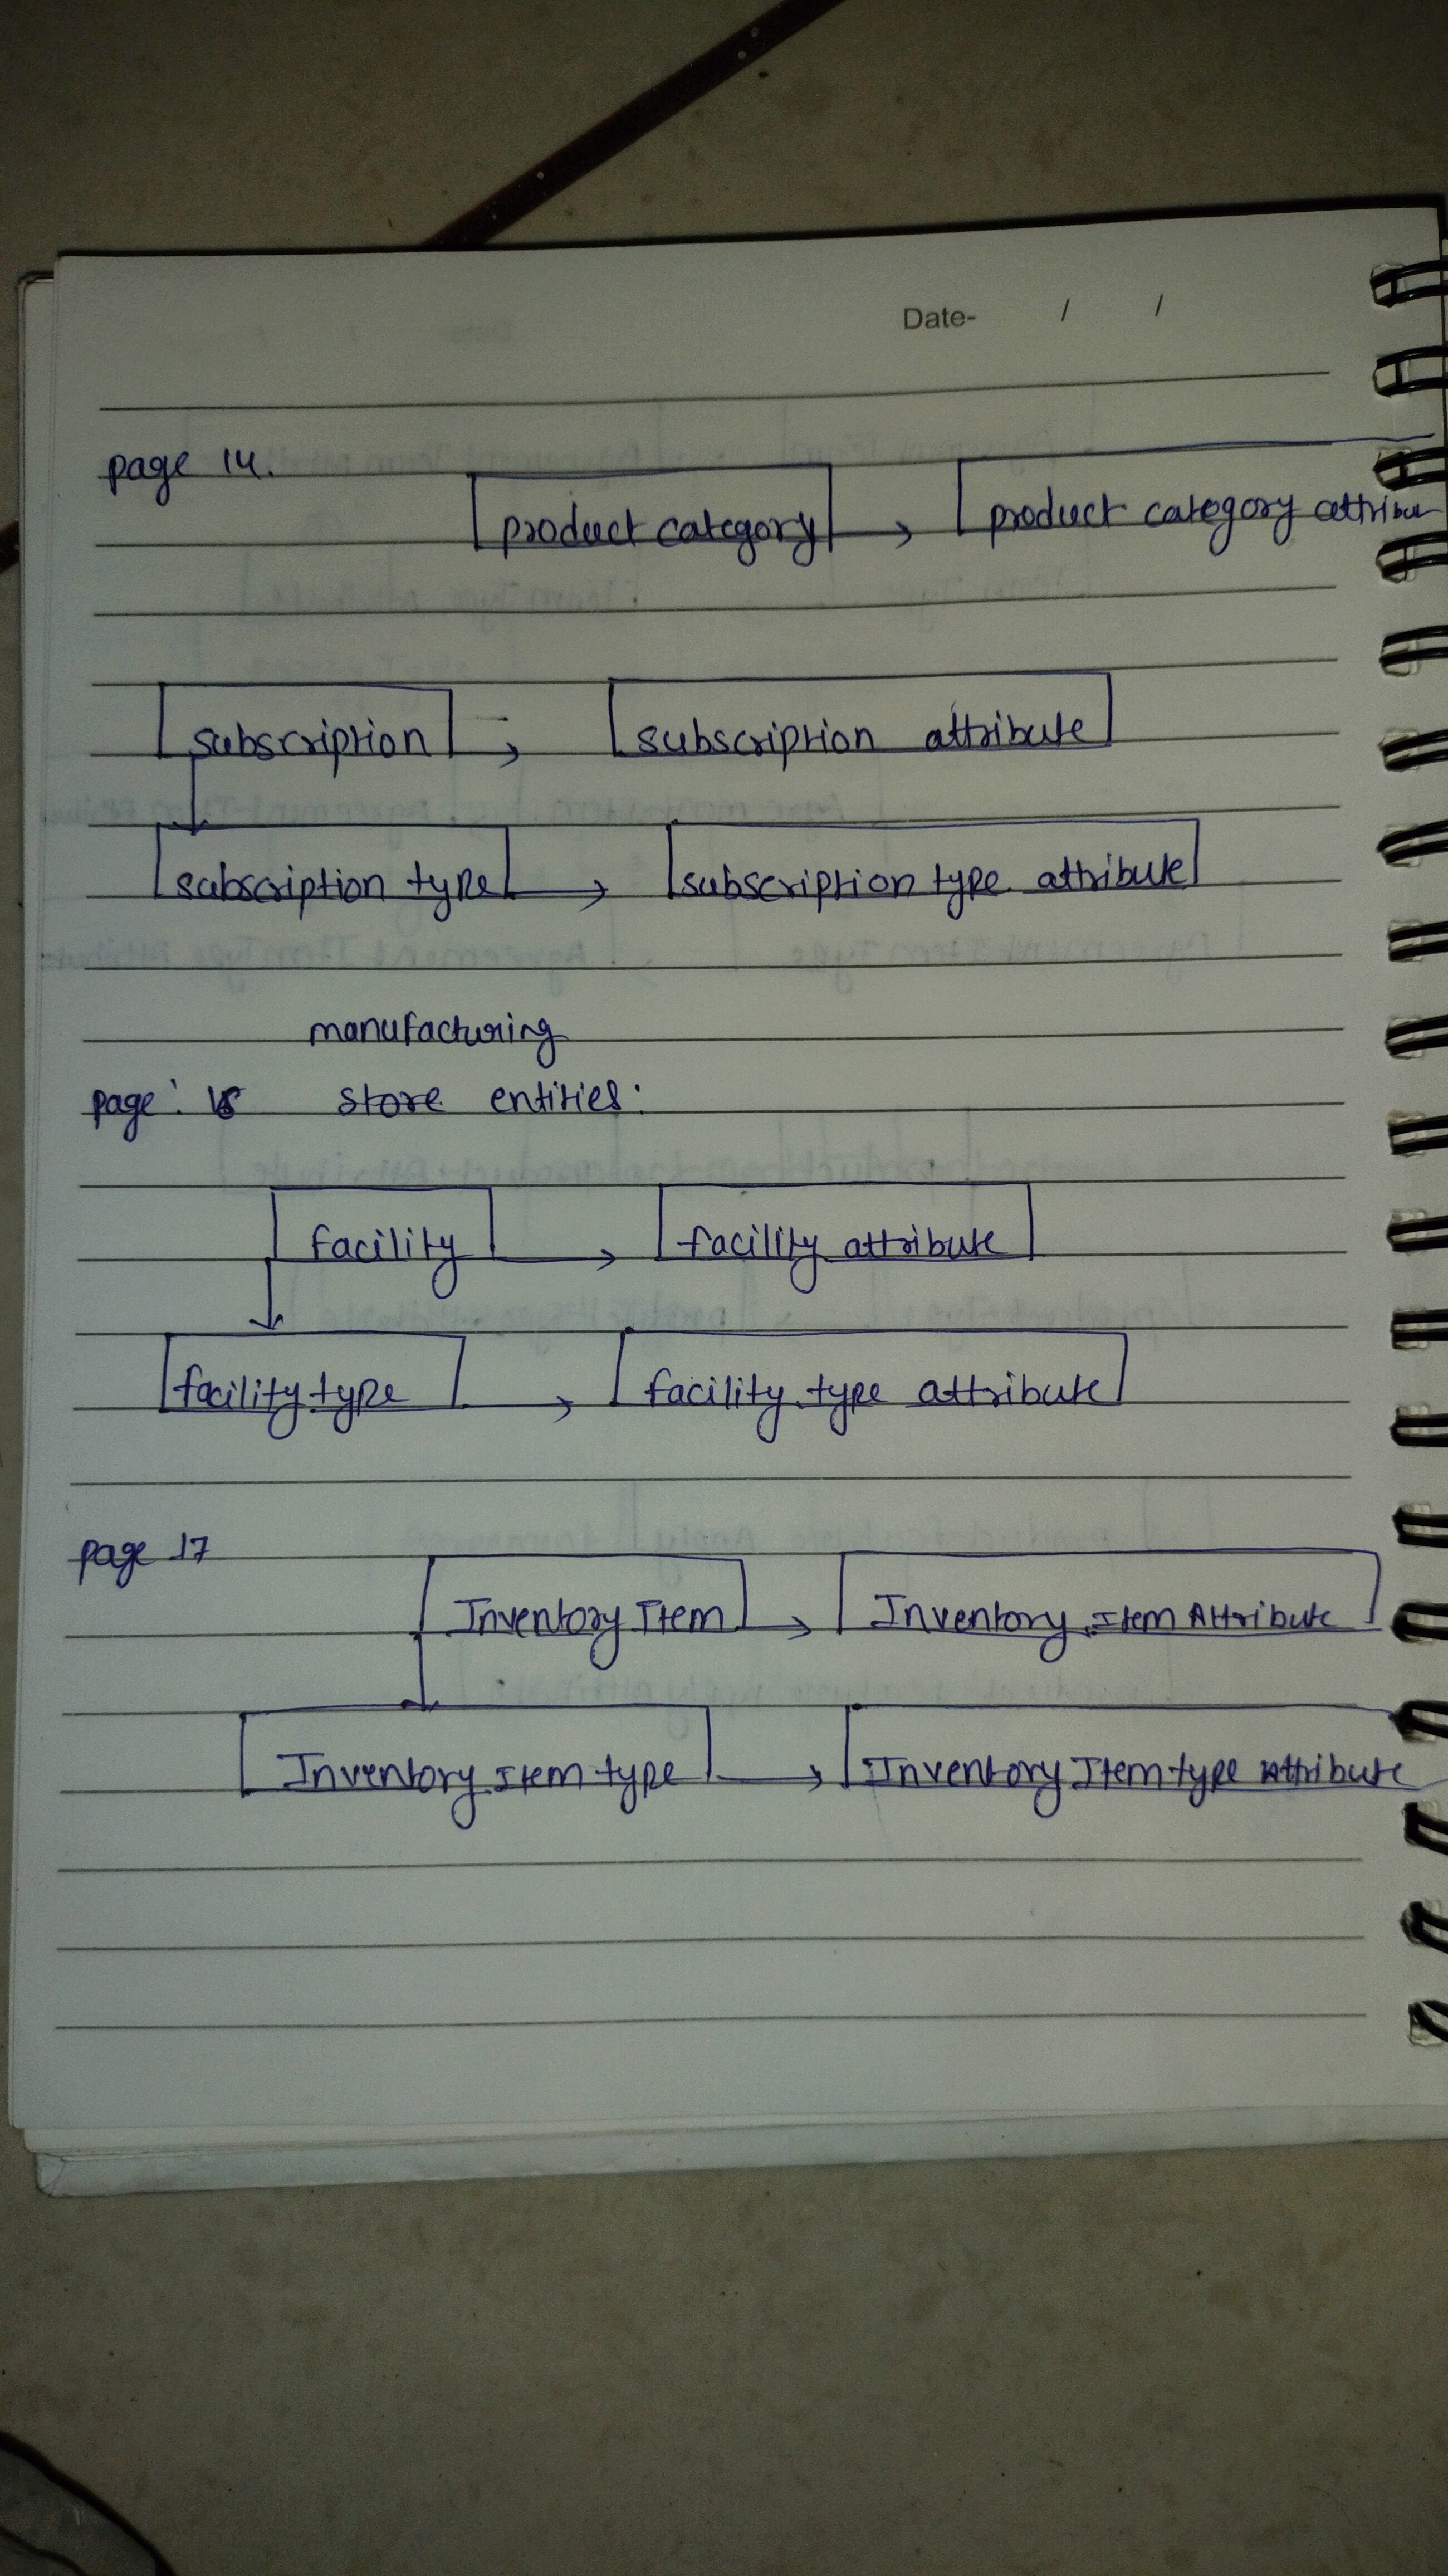 Date- / /
page 14.
product category product category attribu
subscription subscription attribute
subscription type subscription type attribute
manufacturing
page: store entities:
facility facility attribute
facility type facility type attribute
page 17
Inventory Item Inventory Item Attribute
Inventory Item type Inventory Item type Attribute